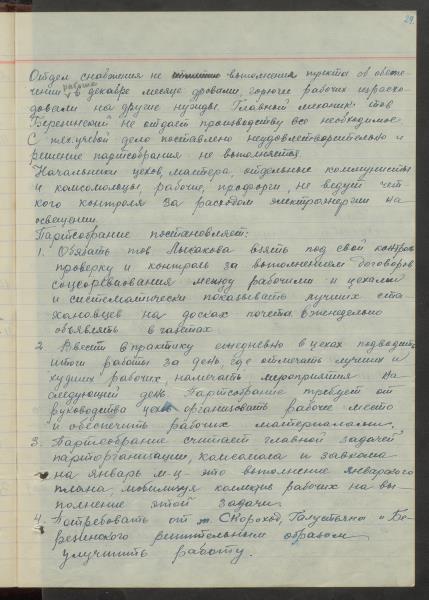 29.
Отдел снабжения не выполнения пункта об обеспе-
чении рабочих в декабре месяце дровами, горючее рабочих израсхо-
довали на другие нужды. Главный механик тов
Березинский не отдает производству все необходимое.
С тех.учебой дело поставлено неудовлетворительно и
решение партсобрания не выполняется.
Начальники цехов, мастера, отдельные коммунисты
и комсомольцы, рабочие, профорги, не ведут чет-
кого контроля за расходом электроэнергии на
освещении.
Партсобрание постановляет:
1. Обязать тов Лысакова взять под свой контроль
проверку и контроль за выполнением договоров
соцсоревнования между рабочими и цехами
и систематически показывать лучших ста-
хановцев на досках почета, еженедельно
объявлять в газетах.
2. Ввести в практику ежедневно в цехах подводить
итоги работы за день, где отмечать лучших и
худших рабочих, намечать мероприятия на
следующий день. Партсобрание требует от
руководства цеха организовать рабочее место
и обеспечить рабочих материалами.
3. Партсобрание считает главной задачей
парторганизации, комсомола и завкома
на январь м-ц - это выполнение январского
плана, мобилизуя коллектив рабочих на вы-
полнение этой задачи.
4. Потребовать от т. Скороход, Галустьяна и Бе-
резинского решительным образом
улучшить работу.